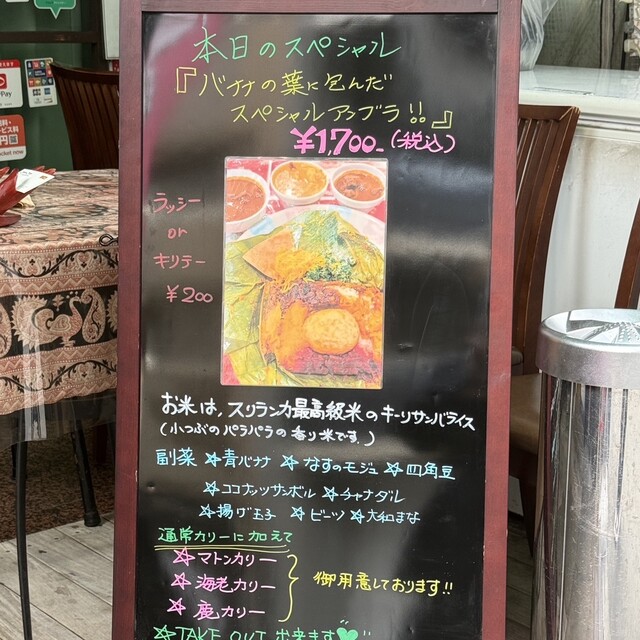 本日のスペシャル
『バナナの葉に包んだ
スペシャルアンブラ!!』
¥1,700-(税込)
ラッシー
or
キリテー
¥200
お米は、スリランカ最高級米のキーリサンバライス
(小つぶのパラパラの香り米です。)
副菜 ☆青バナナ ☆なすのモジュ ☆四角豆
☆ココナッツサンボル ☆チャナダル
☆揚げ玉子 ☆ビーツ ☆大和まな
通常カリーに加えて
☆マトンカリー
☆海老カリー
☆鹿カリー
御用意しております!!
☆TAKE OUT 出来ます